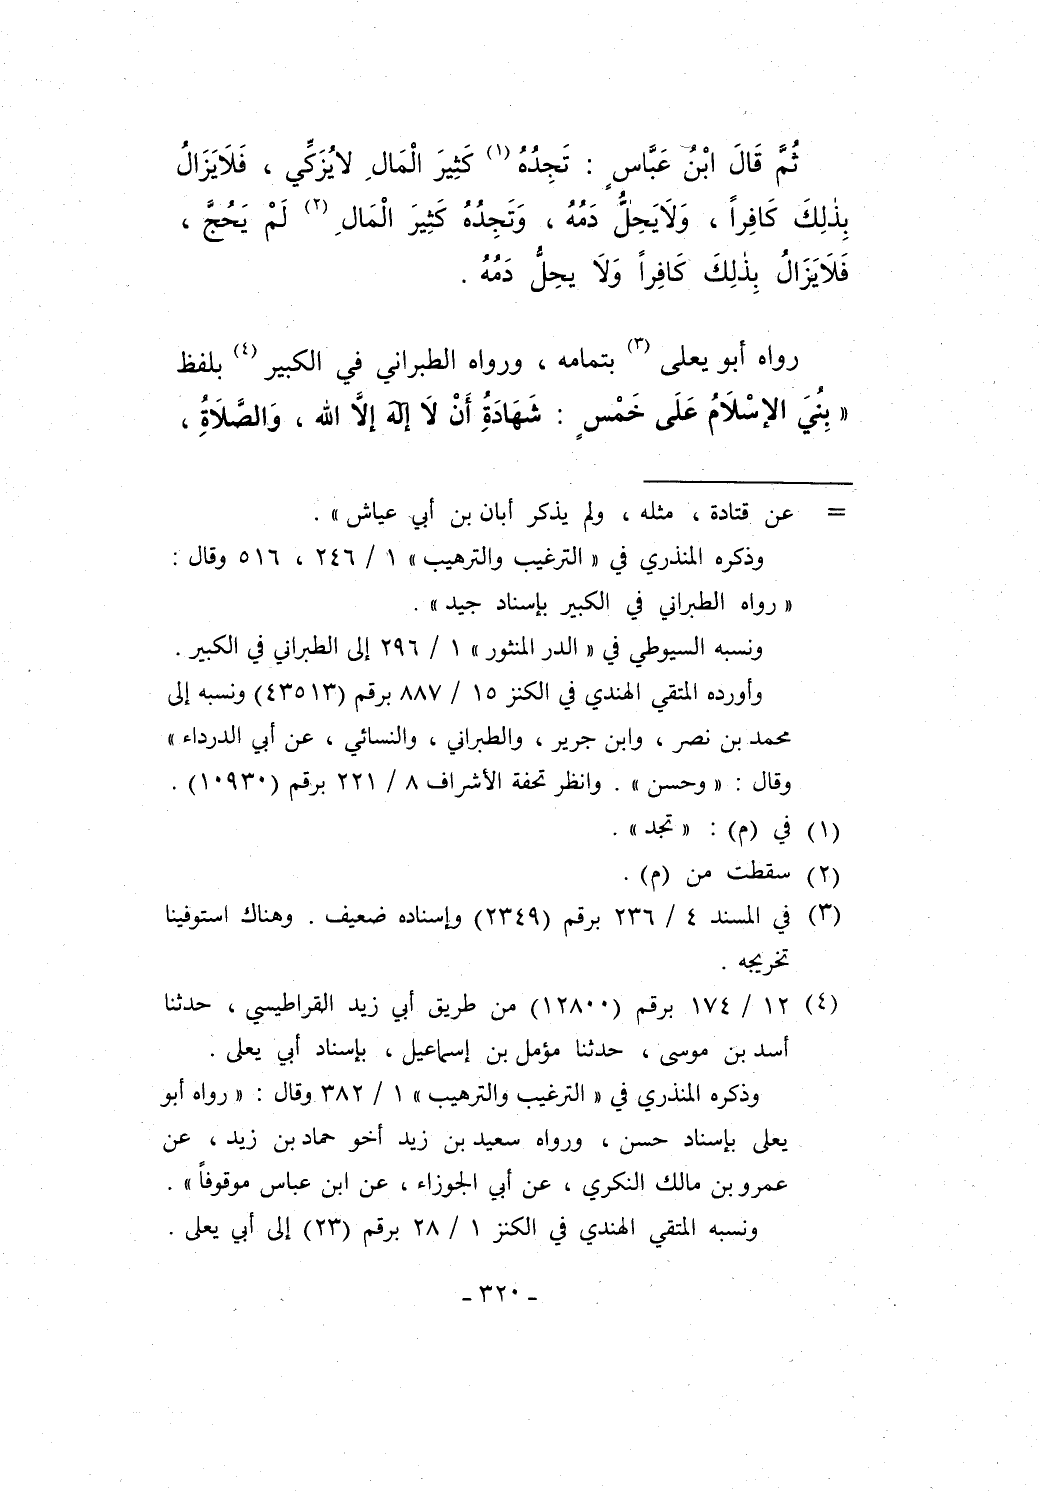 ثُمَّ قَالَ ابْنُ عَبَّاسٍ : تَجِدُهُ (١) كَثِيرَ الْمَالِ لايُزَكِّي ، فَلَايَزَالُ
بِذٰلِكَ كَافِراً ، وَلَايَحِلُّ دَمُهُ ، وَتَجِدُهُ كَثِيرَ الْمَالِ (٢) لَمْ يَحُجَّ ،
فَلَايَزَالُ بِذٰلِكَ كَافِراً وَلَا يحِلُّ دَمُهُ .
رواه أبو يعلى (٣) بتمامه ، ورواه الطبراني في الكبير (٤) بلفظ
« بُنِيَ الإِسْلَامُ عَلَى خَمْسٍ : شَهَادَةُ أَنْ لَا إِلٰهَ إِلَّا الله ، وَالصَّلَاةُ ،
= عن قتادة ، مثله ، ولم يذكر أبان بن أبي عياش » .
وذكره المنذري في « الترغيب والترهيب » ١ / ٢٤٦ ، ٥١٦ وقال :
« رواه الطبراني في الكبير بإسناد جيد » .
ونسبه السيوطي في « الدر المنثور » ١ / ٢٩٦ إلى الطبراني في الكبير .
وأورده المتقي الهندي في الكنز ١٥ / ٨٨٧ برقم (٤٣٥١٣) ونسبه إلى
محمد بن نصر ، وابن جرير ، والطبراني ، والنسائي ، عن أبي الدرداء »
وقال : « وحسن » . وانظر تحفة الأشراف ٨ / ٢٢١ برقم (١٠٩٣٠) .
(١) في (م) : « تجد » .
(٢) سقطت من (م) .
(٣) في المسند ٤ / ٢٣٦ برقم (٢٣٤٩) وإسناده ضعيف . وهناك استوفينا
تخريجه .
(٤) ١٢ / ١٧٤ برقم (١٢٨٠٠) من طريق أبي زيد القراطيسي ، حدثنا
أسد بن موسى ، حدثنا مؤمل بن إسماعيل ، بإسناد أبي يعلى .
وذكره المنذري في « الترغيب والترهيب » ١ / ٣٨٢ وقال : « رواه أبو
يعلى بإسناد حسن ، ورواه سعيد بن زيد أخو حماد بن زيد ، عن
عمرو بن مالك النكري ، عن أبي الجوزاء ، عن ابن عباس موقوفاً » .
ونسبه المتقي الهندي في الكنز ١ / ٢٨ برقم (٢٣) إلى أبي يعلى .
- ٣٢٠ -